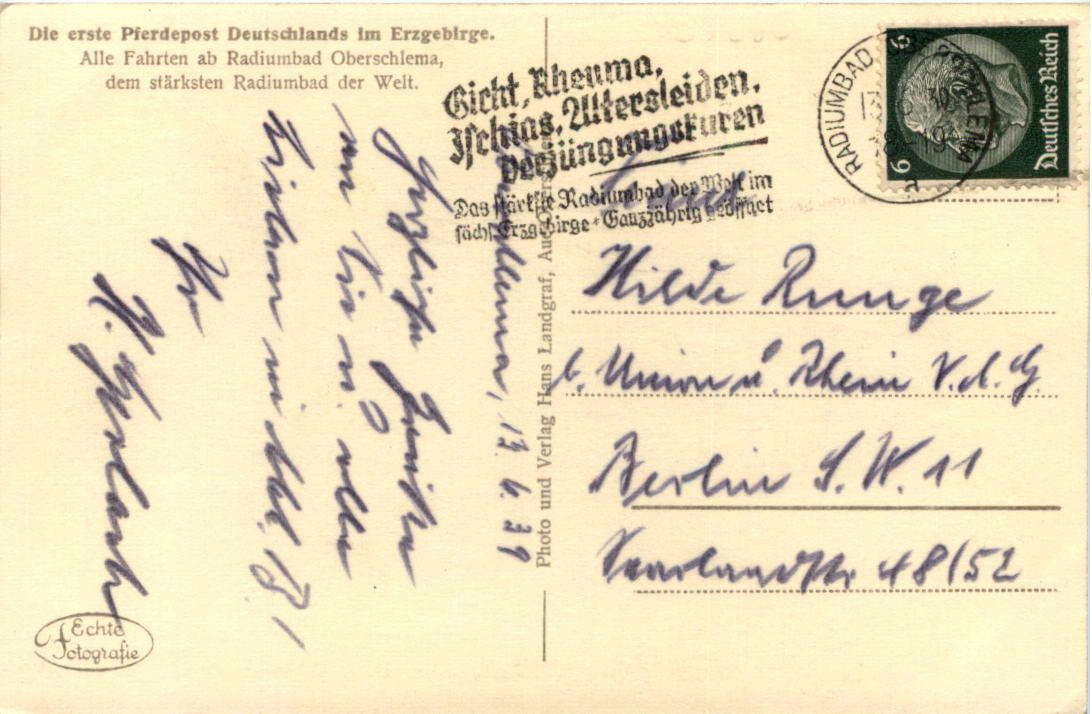 Die erste Pferdepost Deutschlands im Erzgebirge.
Alle Fahrten ab Radiumbad Oberschlema,
dem stärksten Radiumbad der Welt.
Gicht, Rheuma,
Ischias, Altersleiden,
Verjüngungskuren
Das stärkste Radiumbad der Welt im
sächs. Erzgebirge * Ganzjährig geöffnet
RADIUMBAD OBERSCHLEMA
6
6
Deutsches Reich
13. 6. 39
Herzliche Grüße
an Sie u. alle
Lieben
Ihr
Photo und Verlag Hans Landgraf, Aue
Hilde Runge
b. Union u. Rhein V. A. G.
Berlin S. W. 11
Saarlandstr. 48/52
Echte
Fotografie